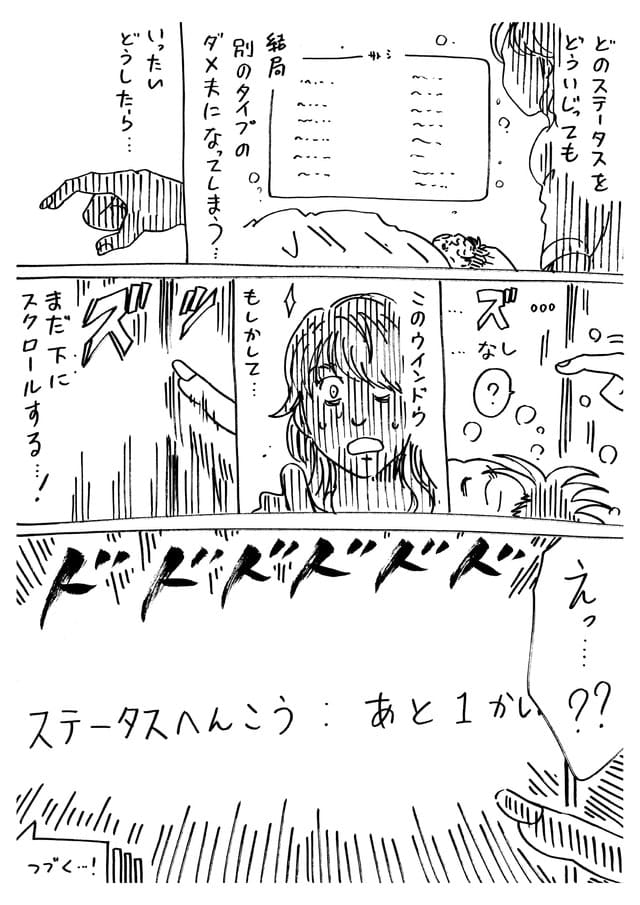 どのステータスを
どういじっても
サトシ
結局
別のタイプの
ダメ夫になってしまう…
いったい
どうしたら…
…ズ…
…なし
?
このウインドウ
もしかして…
ズッ
まだ下に
スクロールする…!
えっ……??
ドドドドドド
ステータスへんこう：あと1かい
つづく…!